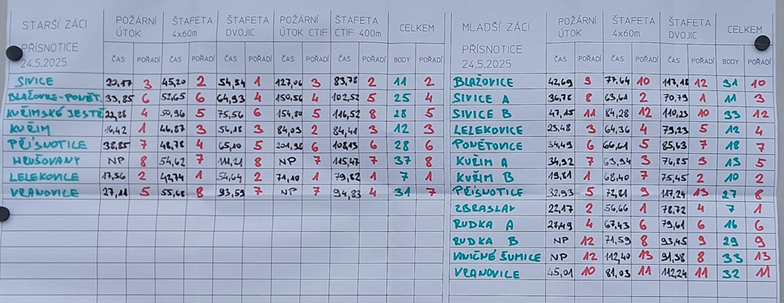 STARŠÍ ŽÁCI PŘÍSNOTICE 24.5.2025
POŽÁRNÍ ÚTOK ŠTAFETA 4x60m ŠTAFETA DVOJIC POŽÁRNÍ ÚTOK CTIF ŠTAFETA CTIF 400m CELKEM
ČAS POŘADÍ ČAS POŘADÍ ČAS POŘADÍ ČAS POŘADÍ ČAS POŘADÍ BODY POŘADÍ
SIVICE 20,17 3 45,20 2 54,54 1 127,06 3 83,78 2 11 2
BLAŽOVICE-PONĚT. 33,85 6 52,65 6 64,93 4 150,56 4 102,52 5 25 4
KUŘIMSKÉ JESTĚ 22,88 4 50,96 5 75,56 6 154,80 5 116,52 8 28 5
KUŘIM 16,42 1 46,87 3 56,18 3 84,03 2 84,41 3 12 3
PŘÍSTICE 38,85 7 48,78 4 65,10 5 201,96 6 108,13 6 28 6
HRUŠOVANY NP 8 54,62 7 111,21 8 NP 7 115,47 7 37 8
LELEKOVICE 17,56 2 42,74 1 54,64 2 71,10 1 79,62 1 7 1
VRANOVICE 27,11 5 55,68 8 93,59 7 NP 7 94,83 4 31 7
MLADŠÍ ŽÁCI PŘÍSNOTICE 24.5.2025
POŽÁRNÍ ÚTOK ŠTAFETA 4x60m ŠTAFETA DVOJIC CELKEM
ČAS POŘADÍ ČAS POŘADÍ ČAS POŘADÍ BODY POŘADÍ
BLAŽOVICE 42,69 9 77,64 10 117,18 12 31 10
SIVICE A 36,78 8 63,61 2 70,79 1 11 3
SIVICE B 47,15 11 84,28 12 110,23 10 33 12
LELEKOVICE 25,48 3 64,36 4 79,23 5 12 4
PONĚTOVICE 34,49 6 66,61 5 85,63 7 18 7
KUŘIM A 34,92 7 63,94 3 76,85 3 13 5
KUŘIM B 19,81 1 68,40 7 75,45 2 10 2
PŘÍSNOTICE 32,93 5 72,81 9 117,24 13 27 8
ZBRASLAV 22,17 2 56,66 1 78,72 4 7 1
RUDKA A 28,49 4 67,43 6 79,61 6 16 6
RUDKA B NP 12 71,59 8 93,45 9 29 9
VANIČNÉ ŠUMICE NP 12 112,40 13 91,38 8 33 13
VRANOVICE 45,01 10 81,03 11 112,24 11 32 11